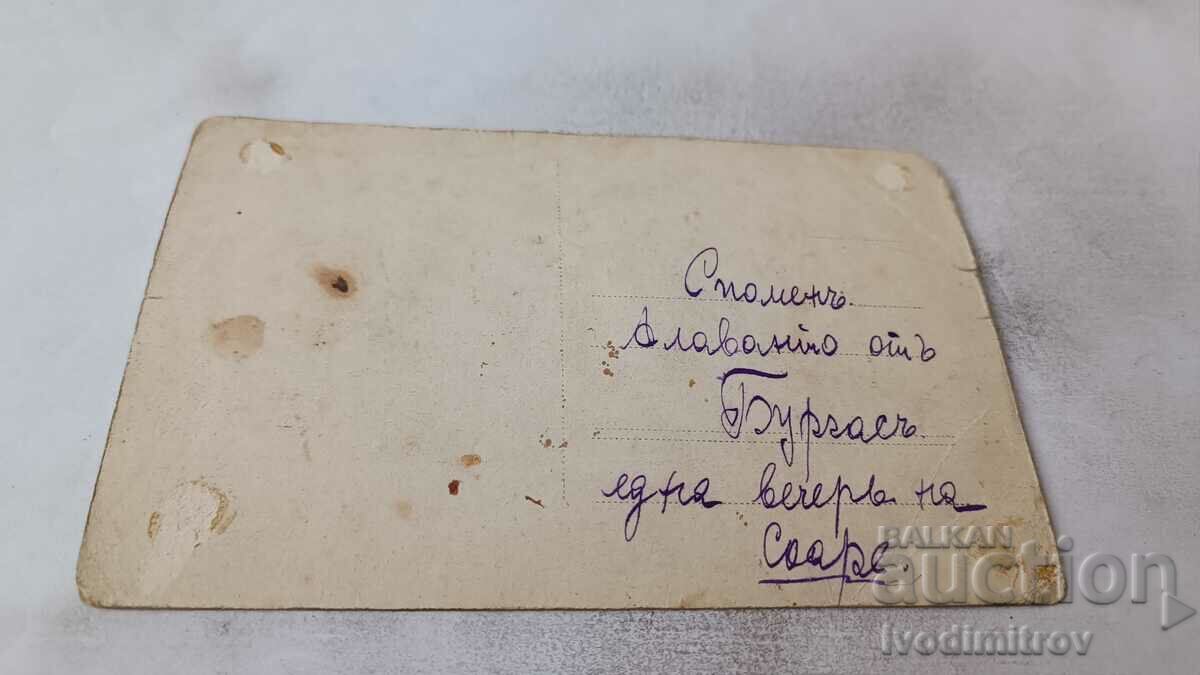 Споменъ.
отъ
Бургасъ.
една вечерь на
Соаре.
BALKAN
auction
ivodimitrov